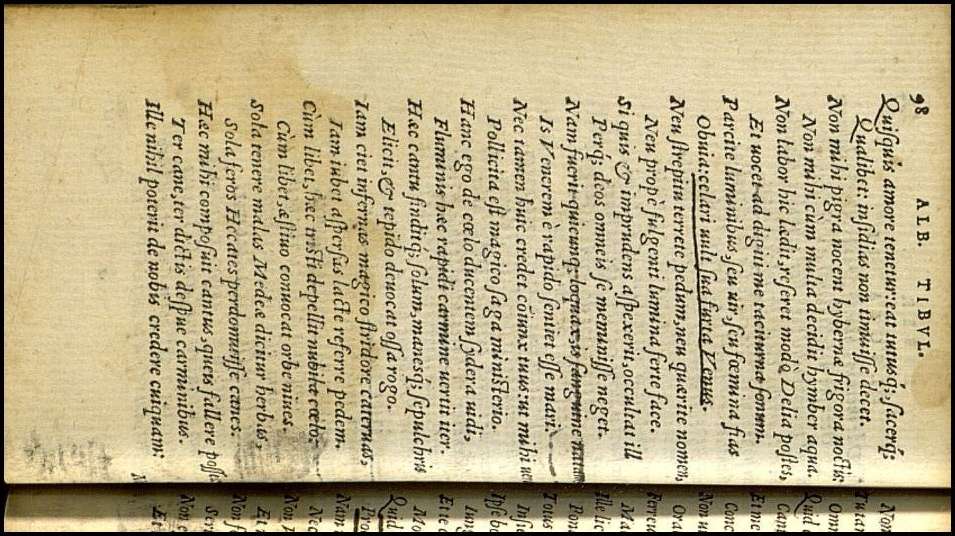 98 ALB. TIBVL.
Quiſquis amore tenetur: eat tutusq́; ſacerq́;
Qualibet: inſidias non timuiſſe decet.
Non mihi pigra nocent hybernæ frigora noctis:
Non mihi cùm multa decidit hymber aqua.
Non labor hic lædit, reſeret modò Delia poſtes,
Et uocet ad digiti me taciturna ſonum.
Parcite luminibus, ſeu uir, ſeu fœmina fias
Obuia: celari uult ſua furta Venus.
Neu ſtrepitu terrete pedum, neu quærite nomen,
Neu propè fulgenti lumina ferte face.
Si quis & imprudens aſpexerit, occulat ill
Perq́; deos omneis ſe meminiſſe neget.
Nam fuerit quicunq; loquax, is ſanguine natam
Is Venerem è rapido ſentiet eſſe mari.
Nec tamen huic credet cōiunx tuus: ut mihi
Pollicita eſt magico ſaga miniſterio.
Hanc ego de cœlo ducentem ſydera uidi,
Fluminis hæc rapidi carmine uertit iter.
Hæc cantu finditq́; ſolum, manesq́; ſepulchris
Elicit, & tepido deuocat oſſa rogo.
Iam ciet infernas magico ſtridore cateruas,
Iam iubet aſperſus lacte referre pedem.
Cùm libet, hæc triſti depellit nubila cœlo:
Cùm libet, æſtiuo conuocat orbe niues.
Sola tenere malas Medeæ dicitur herbas,
Sola feros Hecates perdomuiſſe canes.
Hæc mihi compoſuit cantus, queis fallere poſſes
Ter cane, ter dictis deſpue carminibus.
Ille nihil poterit de nobis credere cuiquam: